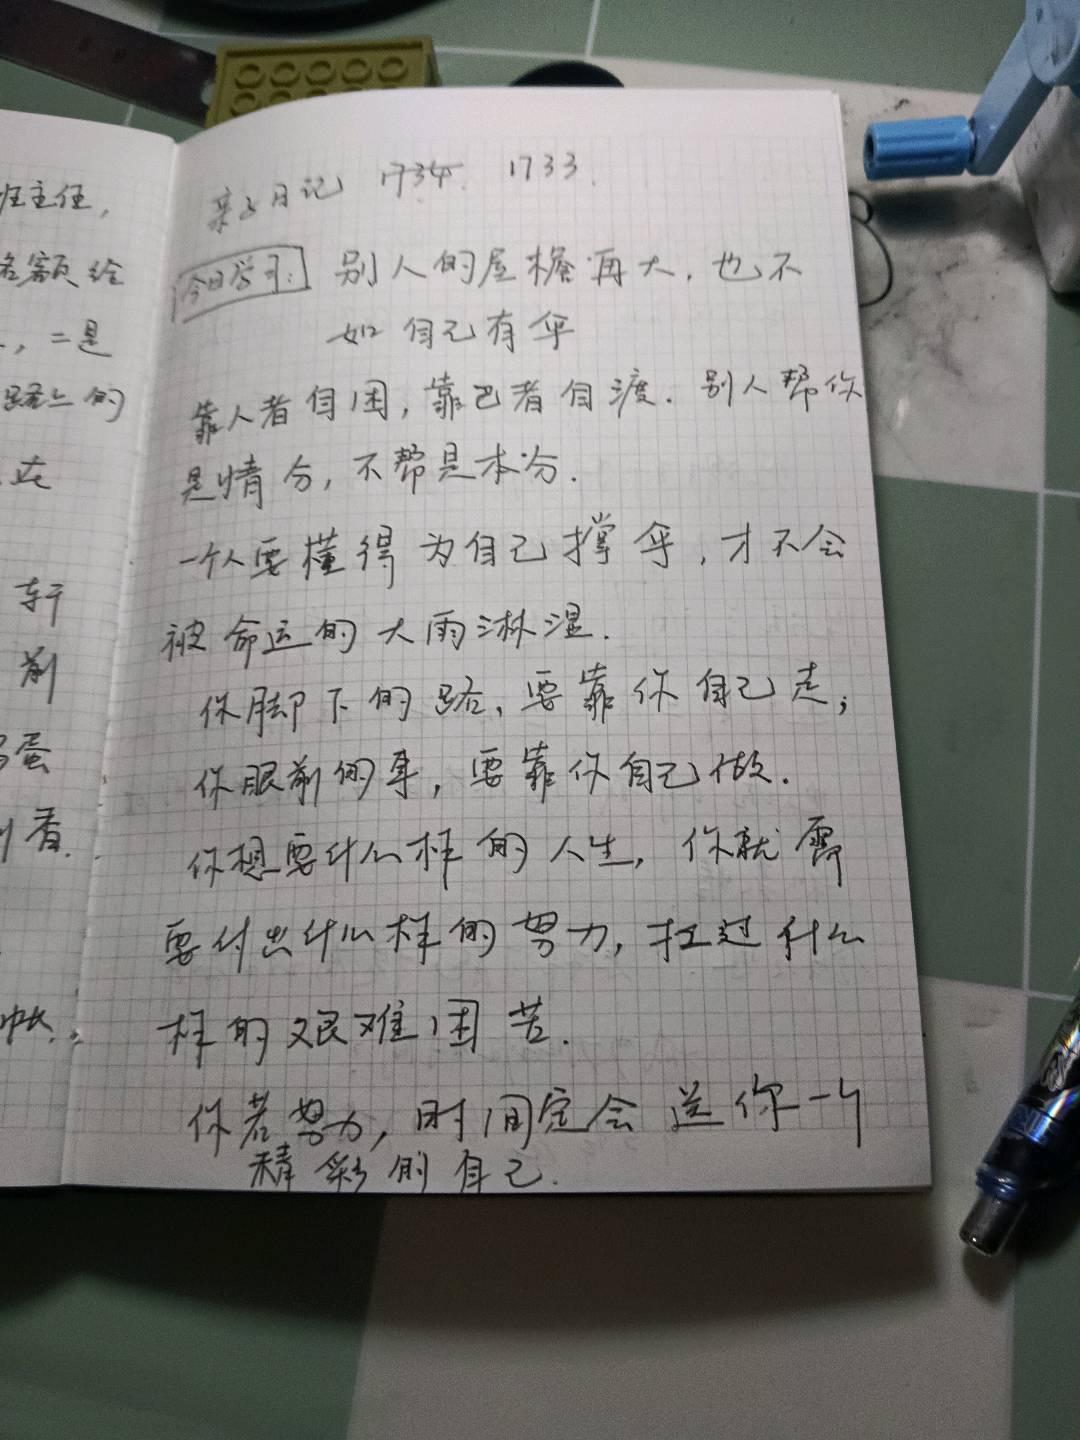 班主任,
名额给
,二是
路上的
在
轩
前
蛋
香.
亲子日记 1734. 1733.
今日学习: 别人的屋檐再大,也不
如自己有伞
靠人者自困,靠己者自渡.别人帮你
是情分,不帮是本分.
一个人要懂得为自己撑伞,才不会
被命运的大雨淋湿.
你脚下的路,要靠你自己走;
你眼前的事,要靠你自己做.
你想要什么样的人生,你就需
要付出什么样的努力,扛过什么
样的艰难困苦.
你若努力,时间定会送你一个
精彩的自己.